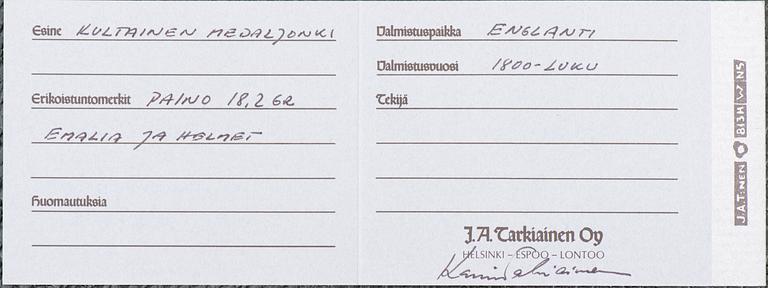 Esine KULTAINEN MEDALJONKI
Erikoistuntomerkit PAINO 18,2 GR
EMALIA JA HELMET
Huomautuksia
Valmistuspaikka ENGLANTI
Valmistusvuosi 1800-LUKU
Tekijä
J.A. Tarkiainen Oy
HELSINKI – ESPOO – LONTOO
J.A.T:NEN